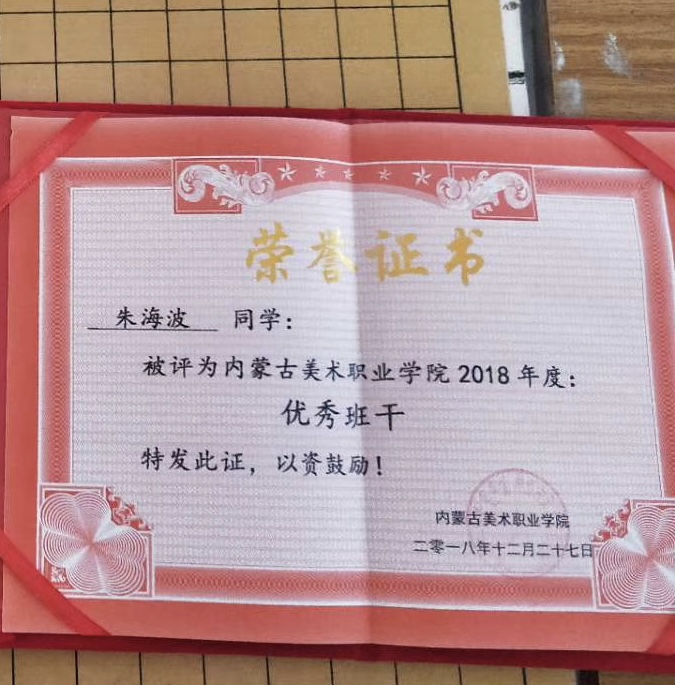 荣誉证书
朱海波 同学：
被评为内蒙古美术职业学院 2018 年度：
优秀班干
特发此证，以资鼓励！
内蒙古美术职业学院
二零一八年十二月二十七日